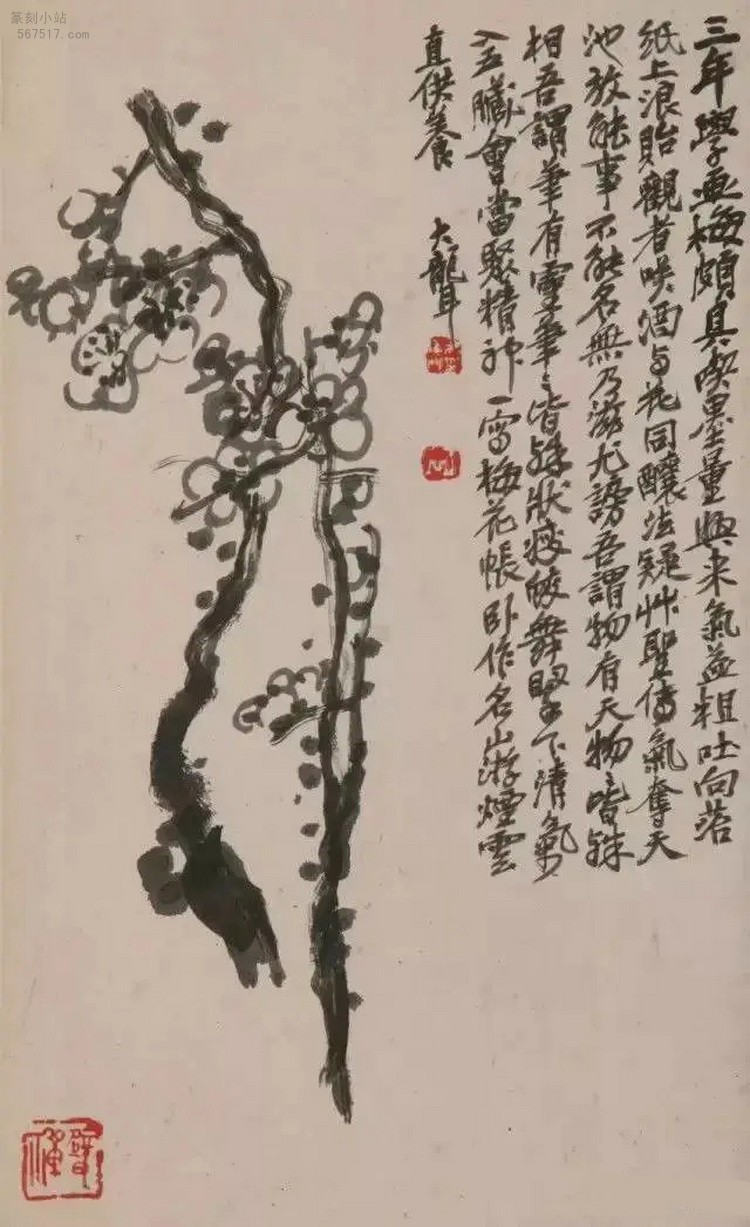 篆刻小站
567517.com
三年學画梅頗具喫墨量興来氣益粗吐向苔
纸上浪貽觀者咲酒与花同釀法疑艸聖傳氣奪天
池放能事不能名無乃滋尤謗吾謂物有天物〻皆殊
相吾謂筆有靈筆〻皆殊狀瘦蛟舞腕下清氣
入五臟會當聚精神一寫梅花帳卧作名山游煙雲
直供養 大聾